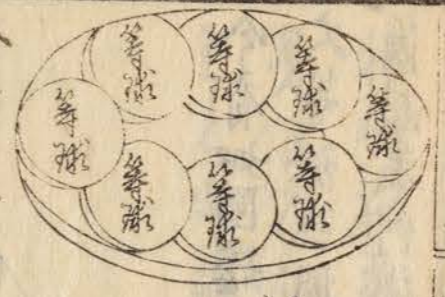 等球
等球
等球
等球
等球
等球
等球
等球